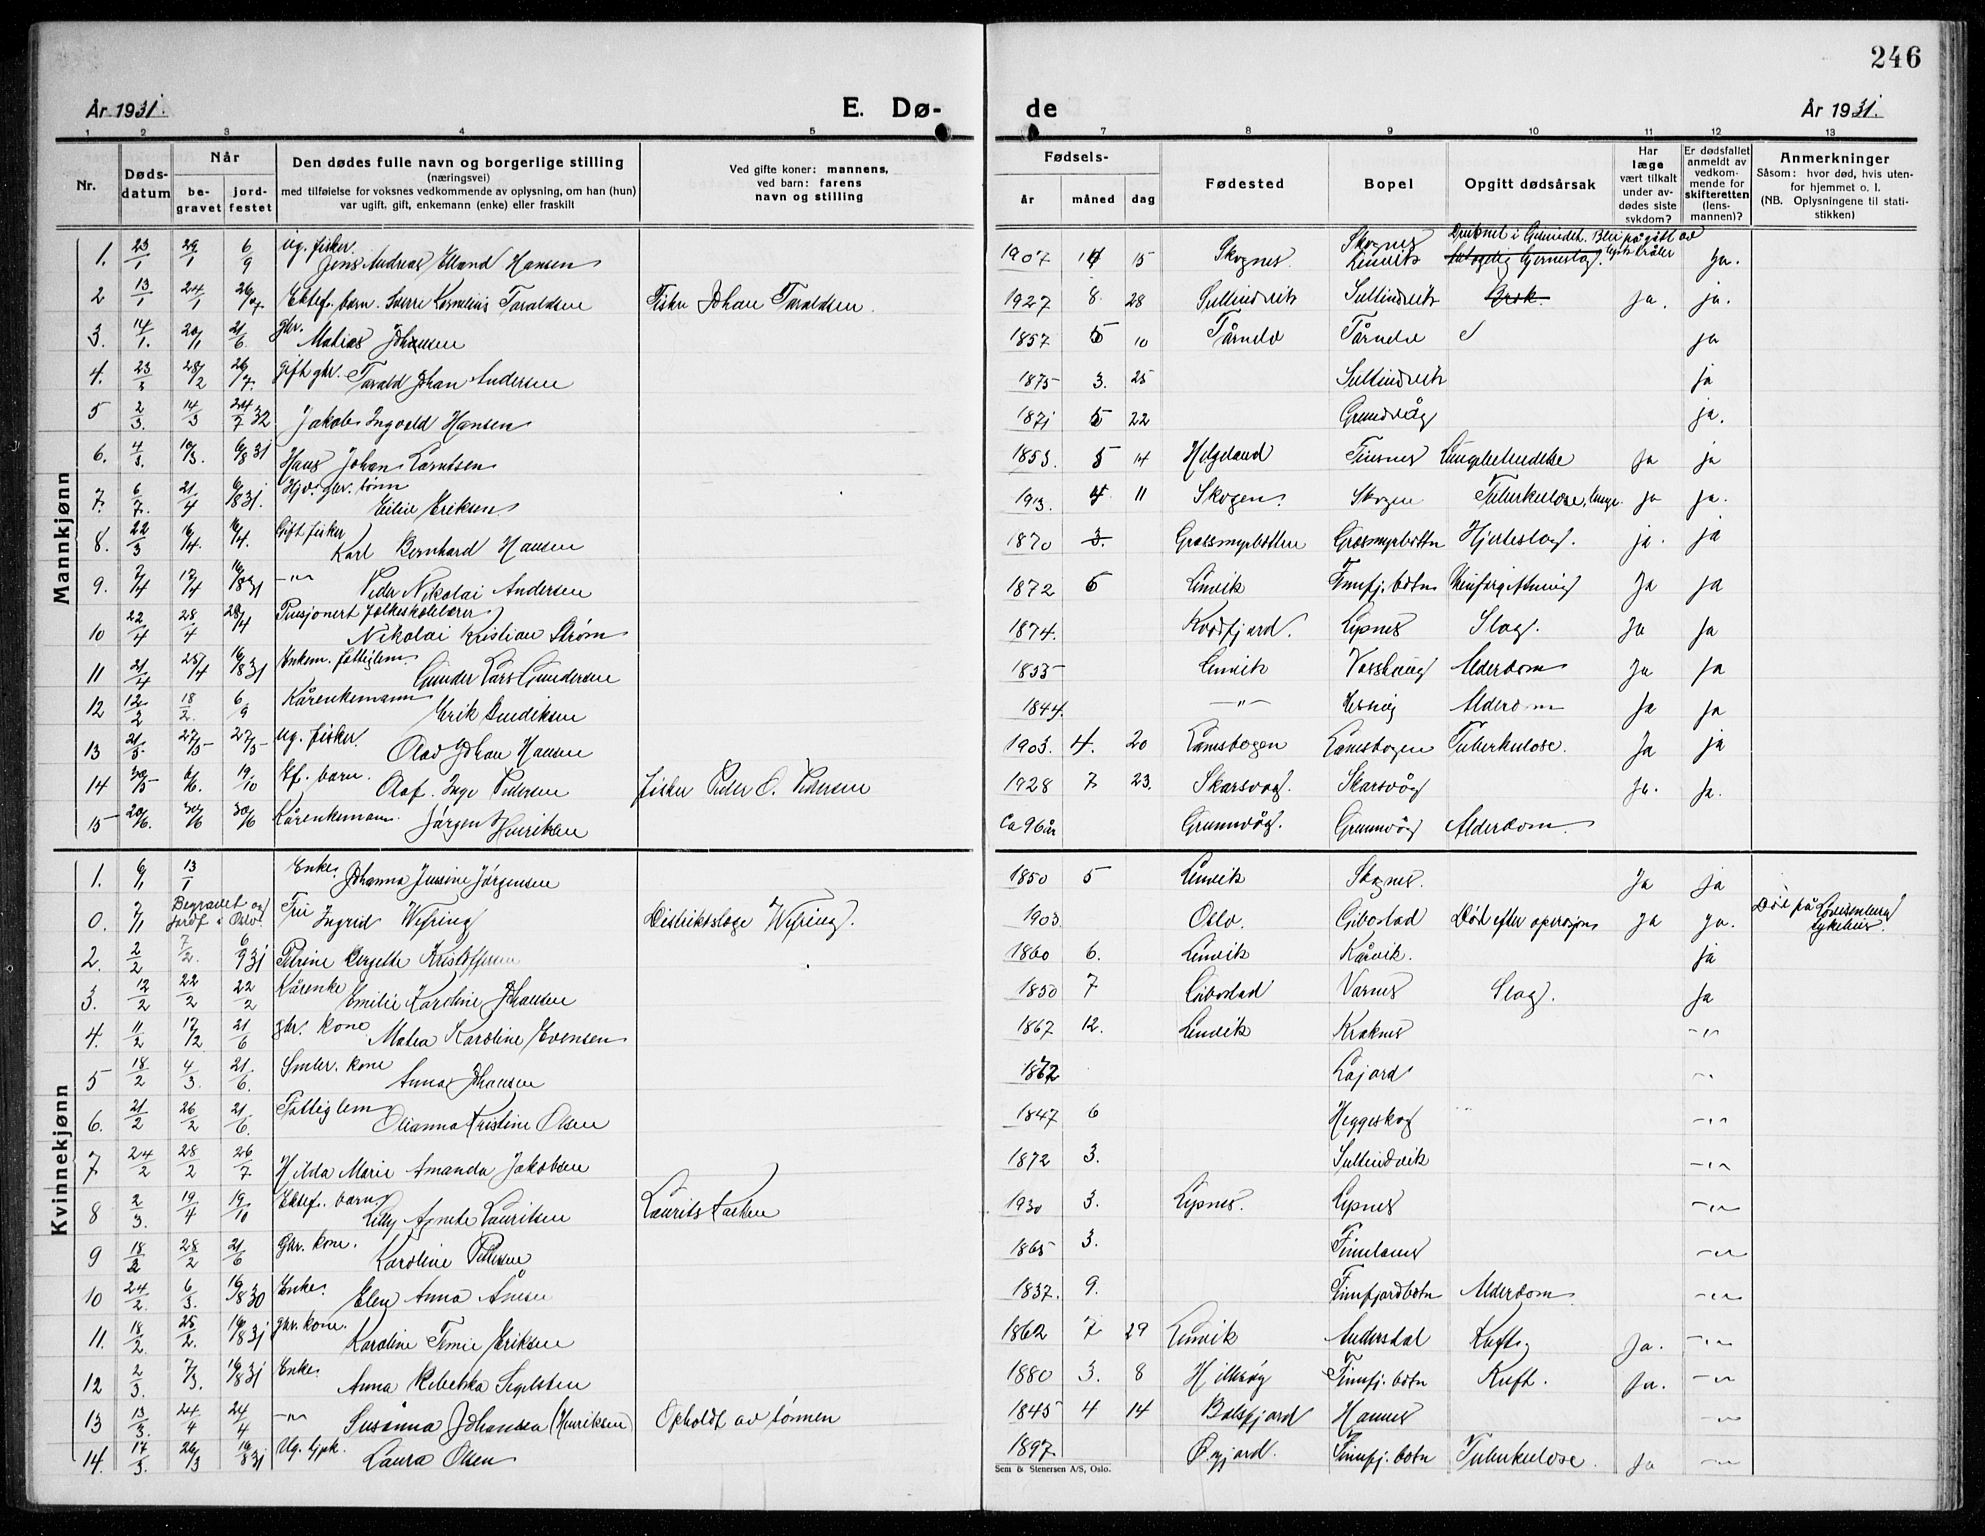 246
År 1931. E. Dø- de År 1931.
1 2 3 4 5 7 8 9 10 11 12 13
Nr. Døds-datum Når be-gravet jord-festet Den dødes fulle navn og borgerlige stilling (næringsvei) med tilføielse for voksnes vedkommende av oplysning, om han (hun) var ugift, gift, enkemann (enke) eller fraskilt Ved gifte koner: mannens, ved barn: farens navn og stilling Fødsels- år måned dag Fødested Bopel Opgitt dødsårsak Har læge vært tilkalt under av-dødes siste sykdom? Er dødsfallet anmeldt av vedkom-mende for skifteretten (lens-mannen)? Anmerkninger Såsom: hvor død, hvis uten-for hjemmet o. l. (NB. Oplysningene til stati-stikken)
Mannkjønn
1. 23/1 29/1 6/9 Ug. fisker Jens Andreas Elland Hansen 1907 4 15 Skognes. Skognes Lenvik ja.
2 13/1 24/1 26/7 Ektef. barn. Sverre Kornelius Taraldsen Fisker Johan Taraldsen. 1927 8. 28 Sultindvik Sultindvik Ja. ja.
3. 14/1. 20/1 21/6 gbr. Matias Johansen 1857 5 10 Tårnelv Tårnelv ja
4. 23/ 28/2 26/7. gift gbr. Tarald Johan Andersen 1875 3. 25 Sultindvik ja
5 2/3. 14/3 24/7 32 Jakob Ingvald Hansen 1871 5 22 Grundvåg ja.
6. 4/3. 10/3. 6/8 31 Hans Johan Larntsen 1853. 5 14 Helgeland Finsnes Lungebetendelse Ja ja
7. 6/7. 21/4 6/8 31. gbr. sønn Eilif Eriksen 1913. 4 11 Skogen. Skogen Tuberkulose, lunge ja ja.
8. 22/3 16/4. 16/4. Gift fisker Karl Bernhard Hansen 1870 3. Grassmyrbotten Grasmyrbottn Hjerteslag. ja. ja
9. 7/4 17/4 16/8 31 -"- Peder Nikolai Andersen 1872 6 Lenvik Finnfj. botn Ja ja
10 22/4 28/4 28/4 Pensjonert folkeskolelærer Nikolai Kristian Strøm 1874. Kvedfjord. Lysnes Slag. Ja Ja
11 21/4 25/4 16/8 31 Enkem. fattiglem Gunder Lars Gundersen 1855 Lenvik Vasshaug Alderdom Ja Ja
12 12/2 18/2. 6/9 Kårenkemann Erik Hendriksen 1844. -"- Alderdom Ja ja
13 21/5 27/5 27/5 Ug. fisker. Olav Johan Hansen 1903. 4. 20 Lamsbogen Lamsbogen Tuberkulose. Ja ja
14 30/5 6/6. 19/10 Ef. barn. Olaf. Inge Pedersen fisker Peder O. Pedersen 1928 7 23. Skarsvåg. Skarsvåg Ja. Ja.
15 20/6. 30/6 30/6 Kårenkemann. Jørgen Henriksen Ca 96 år Grunnvåg. Grunnvåg Alderdom.
Kvinnekjønn
1. 6/1 13/1 Enke. Johanna Jensine Jørgensen 1850 5 Lenvik Skognes. Ja ja
0. 2/1 Begravet og jordf. i Oslo. Fru Ingrid Wefring Distriktslæge Wefring. 1903 Oslo. Gibostad Død efter operasjon Ja ja. Død på Lovisenberg sykehus.
2. 2/2 7/2. 6/9 31 Petrine Bergitte Kristoffersen 1860 6. Lenvik Kårvik. ja
3. 12/2 22/2 22/2 Kårenke Emilie Karoline Johansen 1850 7 Gibostad Varnes Slag. Ja
4. 11/2 17/2. 21/6 gbr. kone Matea Karoline Evensen 1867 12. Lenvik Kraknes -"-
5 18/2 4/3. 21/6. Småbr. kone Anna Johansen 1862 Lajord -"-
6. 21/2 26/2 21/6. Fattiglem Olianna Kristine Olsen 1847 6 Heggeskog -"-
7 24/2 28/2 26/7 Hilda Marie Amanda Jakobsen 1872 3. Sultindvik -"-
8 2/3. 19/4 19/10 Ektef. barn Lilly Agnete Lauritsen Laurits Larsen 1930 3. Lysnes. Lysnes -"-
9 18/2 28/2 21/6 Gbr. kone. Karoline Pedersen 1865 3. Finnlund -"-
10 24/2. 6/3. 16/8 30 Enke. Elen Anna Ånesen 1837. 9. Finnfjordbotn Alderdom. -"-
11. 18/2. 25/2. 16/8 31 gbr. kone. Karoline Eriksen 1862 7 29 Lenvik Andersdal Kreft. Ja. -"-
12 2/3. 7/3. 16/8 31 Enke. Anna Rebekka Sigelsten 1880 3. 8 Hillesøy Finnfj. botn Kreft. Ja. -"-
13 13/3. 24/4 24/4 -"- Susanna Johansen (Henriksen) Opholdt av sønnen 1845 4 14 Balsfjord Hannes -"-
14. 17/3. 26/3 16/8 31 Ug. tjpk. Laura Olsen 1897. Øyjord. Finnfj. botn Tuberkulose. Ja -"-
Sem & Stenersen A/S, Oslo.